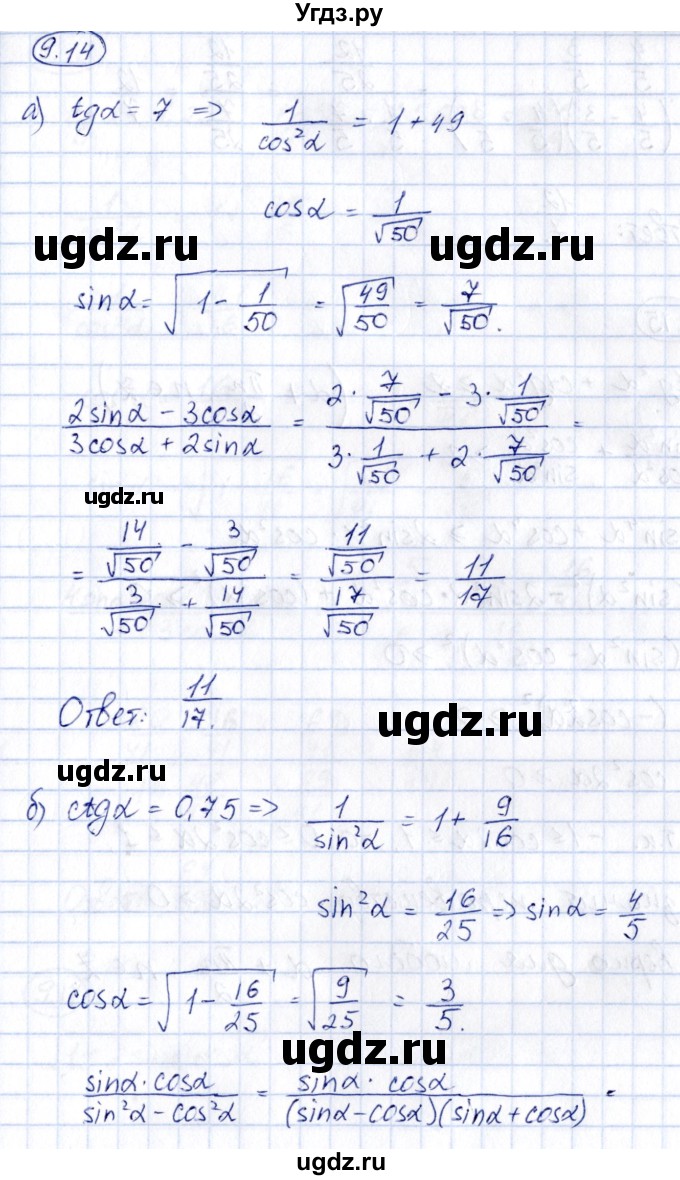 Угдз.ру
9.14
а) tgα = 7 => 1/cos²α = 1 + 49
cosα = 1/√50
ugdz.ru ugdz.ru
sinα = √(1 - 1/50) = √(49/50) = 7/√50.
(2sinα - 3cosα)/(3cosα + 2sinα) = (2·7/√50 - 3·1/√50)/(3·1/√50 + 2·7/√50) =
ugdz.ru
= (14/√50 - 3/√50)/(3/√50 + 14/√50) = (11/√50)/(17/√50) = 11/17
Ответ: 11/17.
ugdz.ru
ugdz.ru
б) ctgα = 0,75 => 1/sin²α = 1 + 9/16
sin²α = 16/25 => sinα = 4/5
cosα = √(1 - 16/25) = √(9/25) = 3/5.
ugdz.ru
(sinα·cosα)/(sin²α - cos²α) = (sinα · cosα)/((sinα - cosα)(sinα + cosα)) =
ugdz.ru